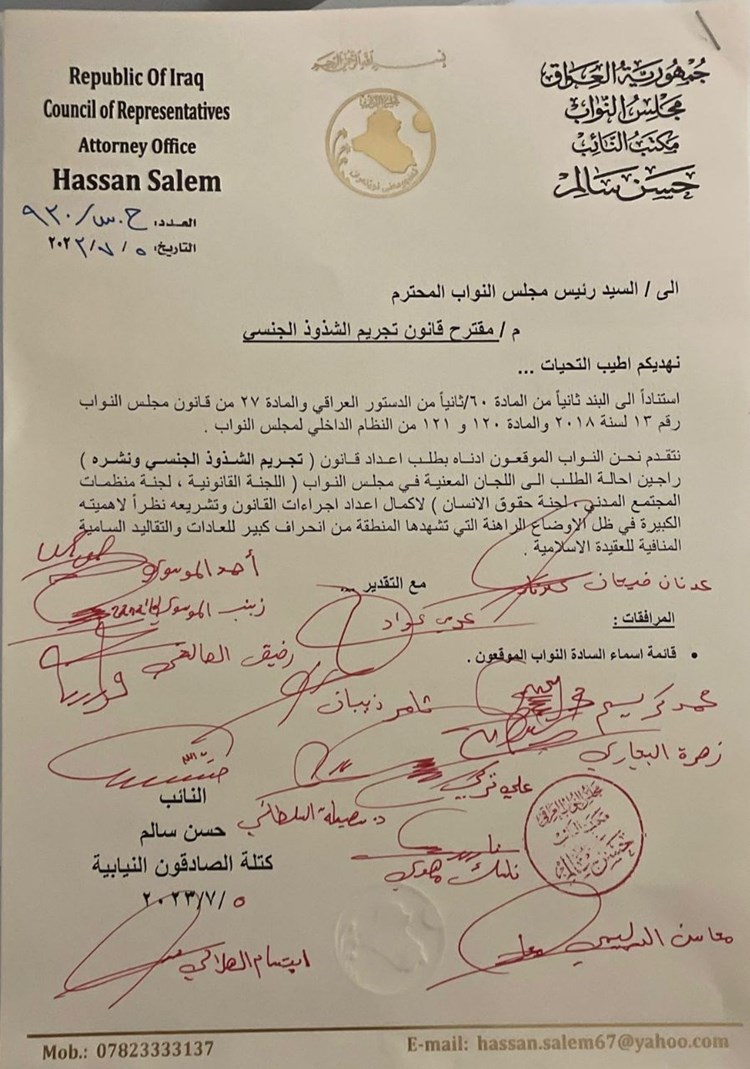 بسم الله الرحمن الرحيم
Republic Of Iraq
Council of Representatives
Attorney Office
Hassan Salem
جمهورية العراق
مجلس النواب
مكتب النائب
حسن سالم
العدد: ح.س/٩٣٠
التاريخ: ٥ /٧/ ٢٠٢٣
الى / السيد رئيس مجلس النواب المحترم
م / مقترح قانون تجريم الشذوذ الجنسي
نهديكم اطيب التحيات ...
استناداً الى البند ثانياً من المادة ٦٠/ثانياً من الدستور العراقي والمادة ٢٧ من قانون مجلس النواب
رقم ١٣ لسنة ٢٠١٨ والمادة ١٢٠ و ١٢١ من النظام الداخلي لمجلس النواب .
نتقدم نحن النواب الموقعون ادناه بطلب اعداد قانون ( تجريم الشذوذ الجنسي ونشره )
راجين احالة الطلب الى اللجان المعنية في مجلس النواب ( اللجنة القانونية ، لجنة منظمات
المجتمع المدني ، لجنة حقوق الانسان ) لاكمال اعداد اجراءات القانون وتشريعه نظراً لاهميته
الكبيرة في ظل الاوضاع الراهنة التي تشهدها المنطقة من انحراف كبير للعادات والتقاليد السامية
المنافية للعقيدة الاسلامية .
أحمد الموسوي
عدنان فيحان
مع التقدير ...
زينب الموسوي
المرافقات :
رفيق الصالحي
• قائمة اسماء السادة النواب الموقعون .
ثامر ذيبان
محمد كريم
زهرة البجاري
علي تركي
النائب
حسن سالم
كتلة الصادقون النيابية
٢٠٢٣/٧/٥
مجلس النواب العراقي
مكتب النائب
حسن سالم
ابتسام الهلالي
Mob.: 07823333137
E-mail: hassan.salem67@yahoo.com